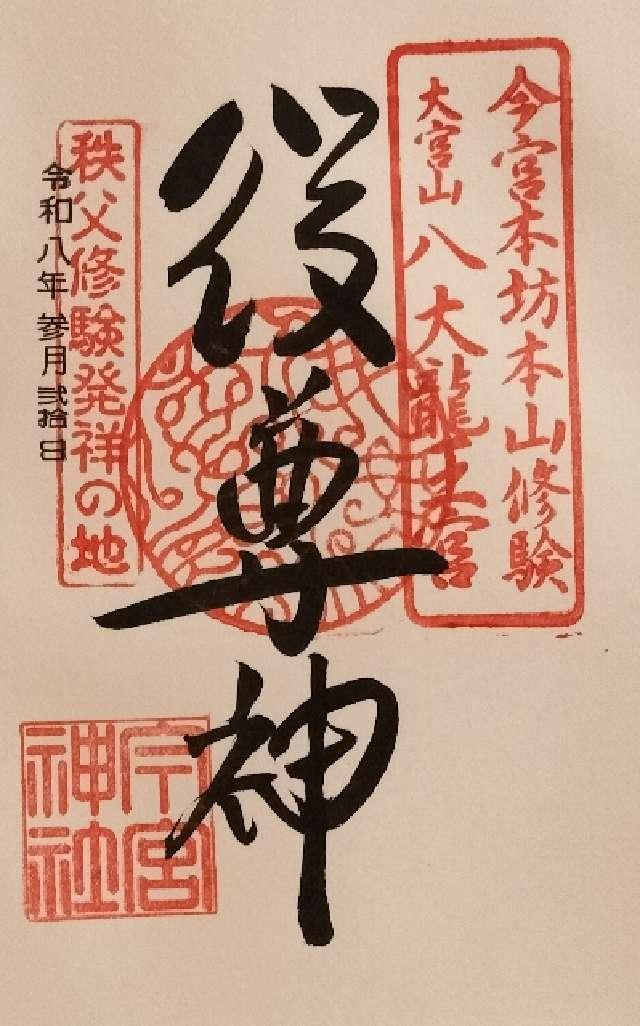 今宮本坊本山修験
大宮山八大龍王宮
役尊神
秩父修験発祥の地
令和八年参月弐拾日
今宮
神社